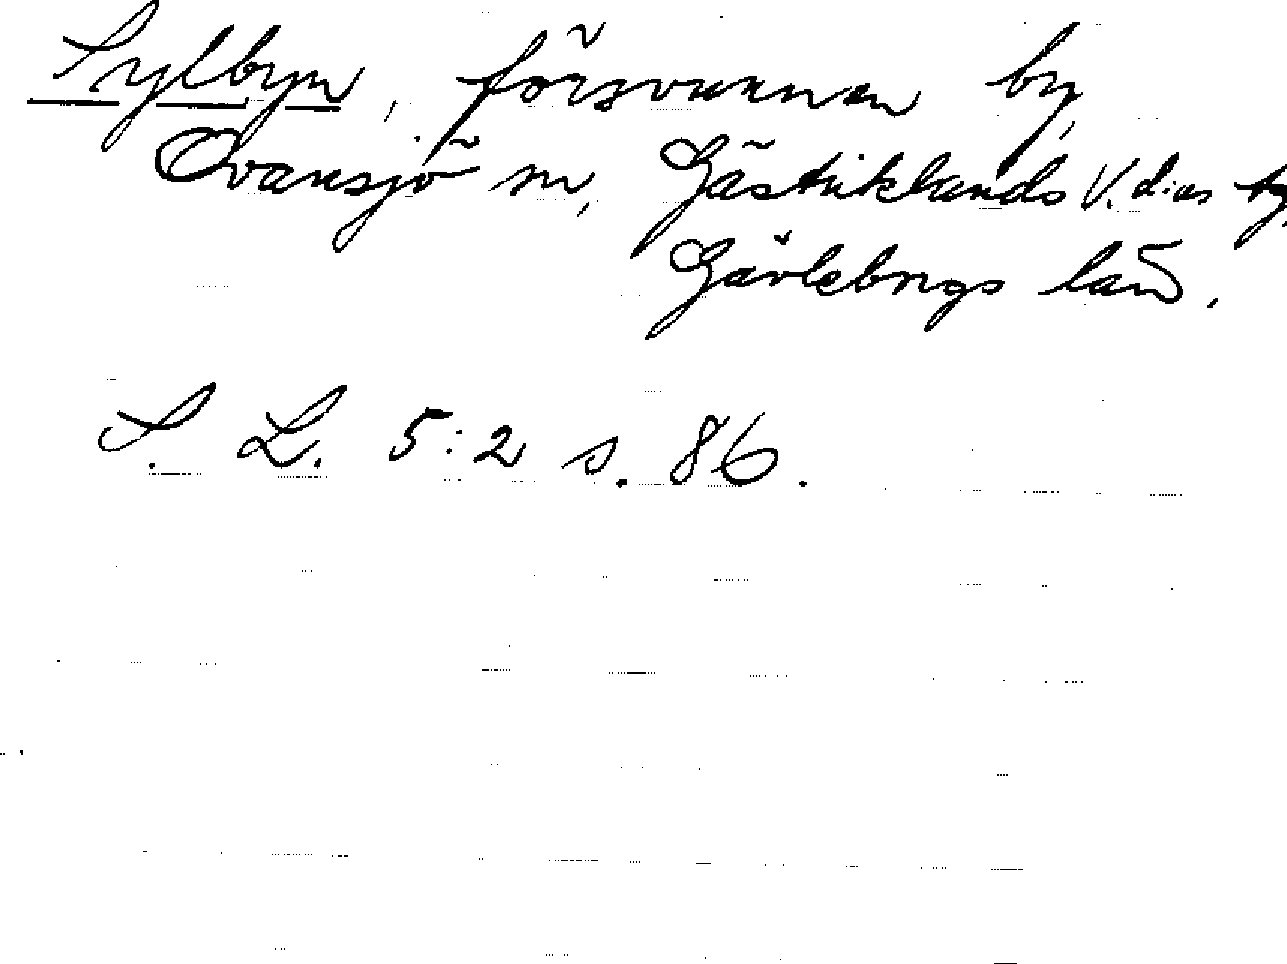 Sylbyn, försvunnen by,
Ovansjö sn, Gästriklands V. d:as tg,
Gävleborgs län.
S. L. 5:2 s. 86.